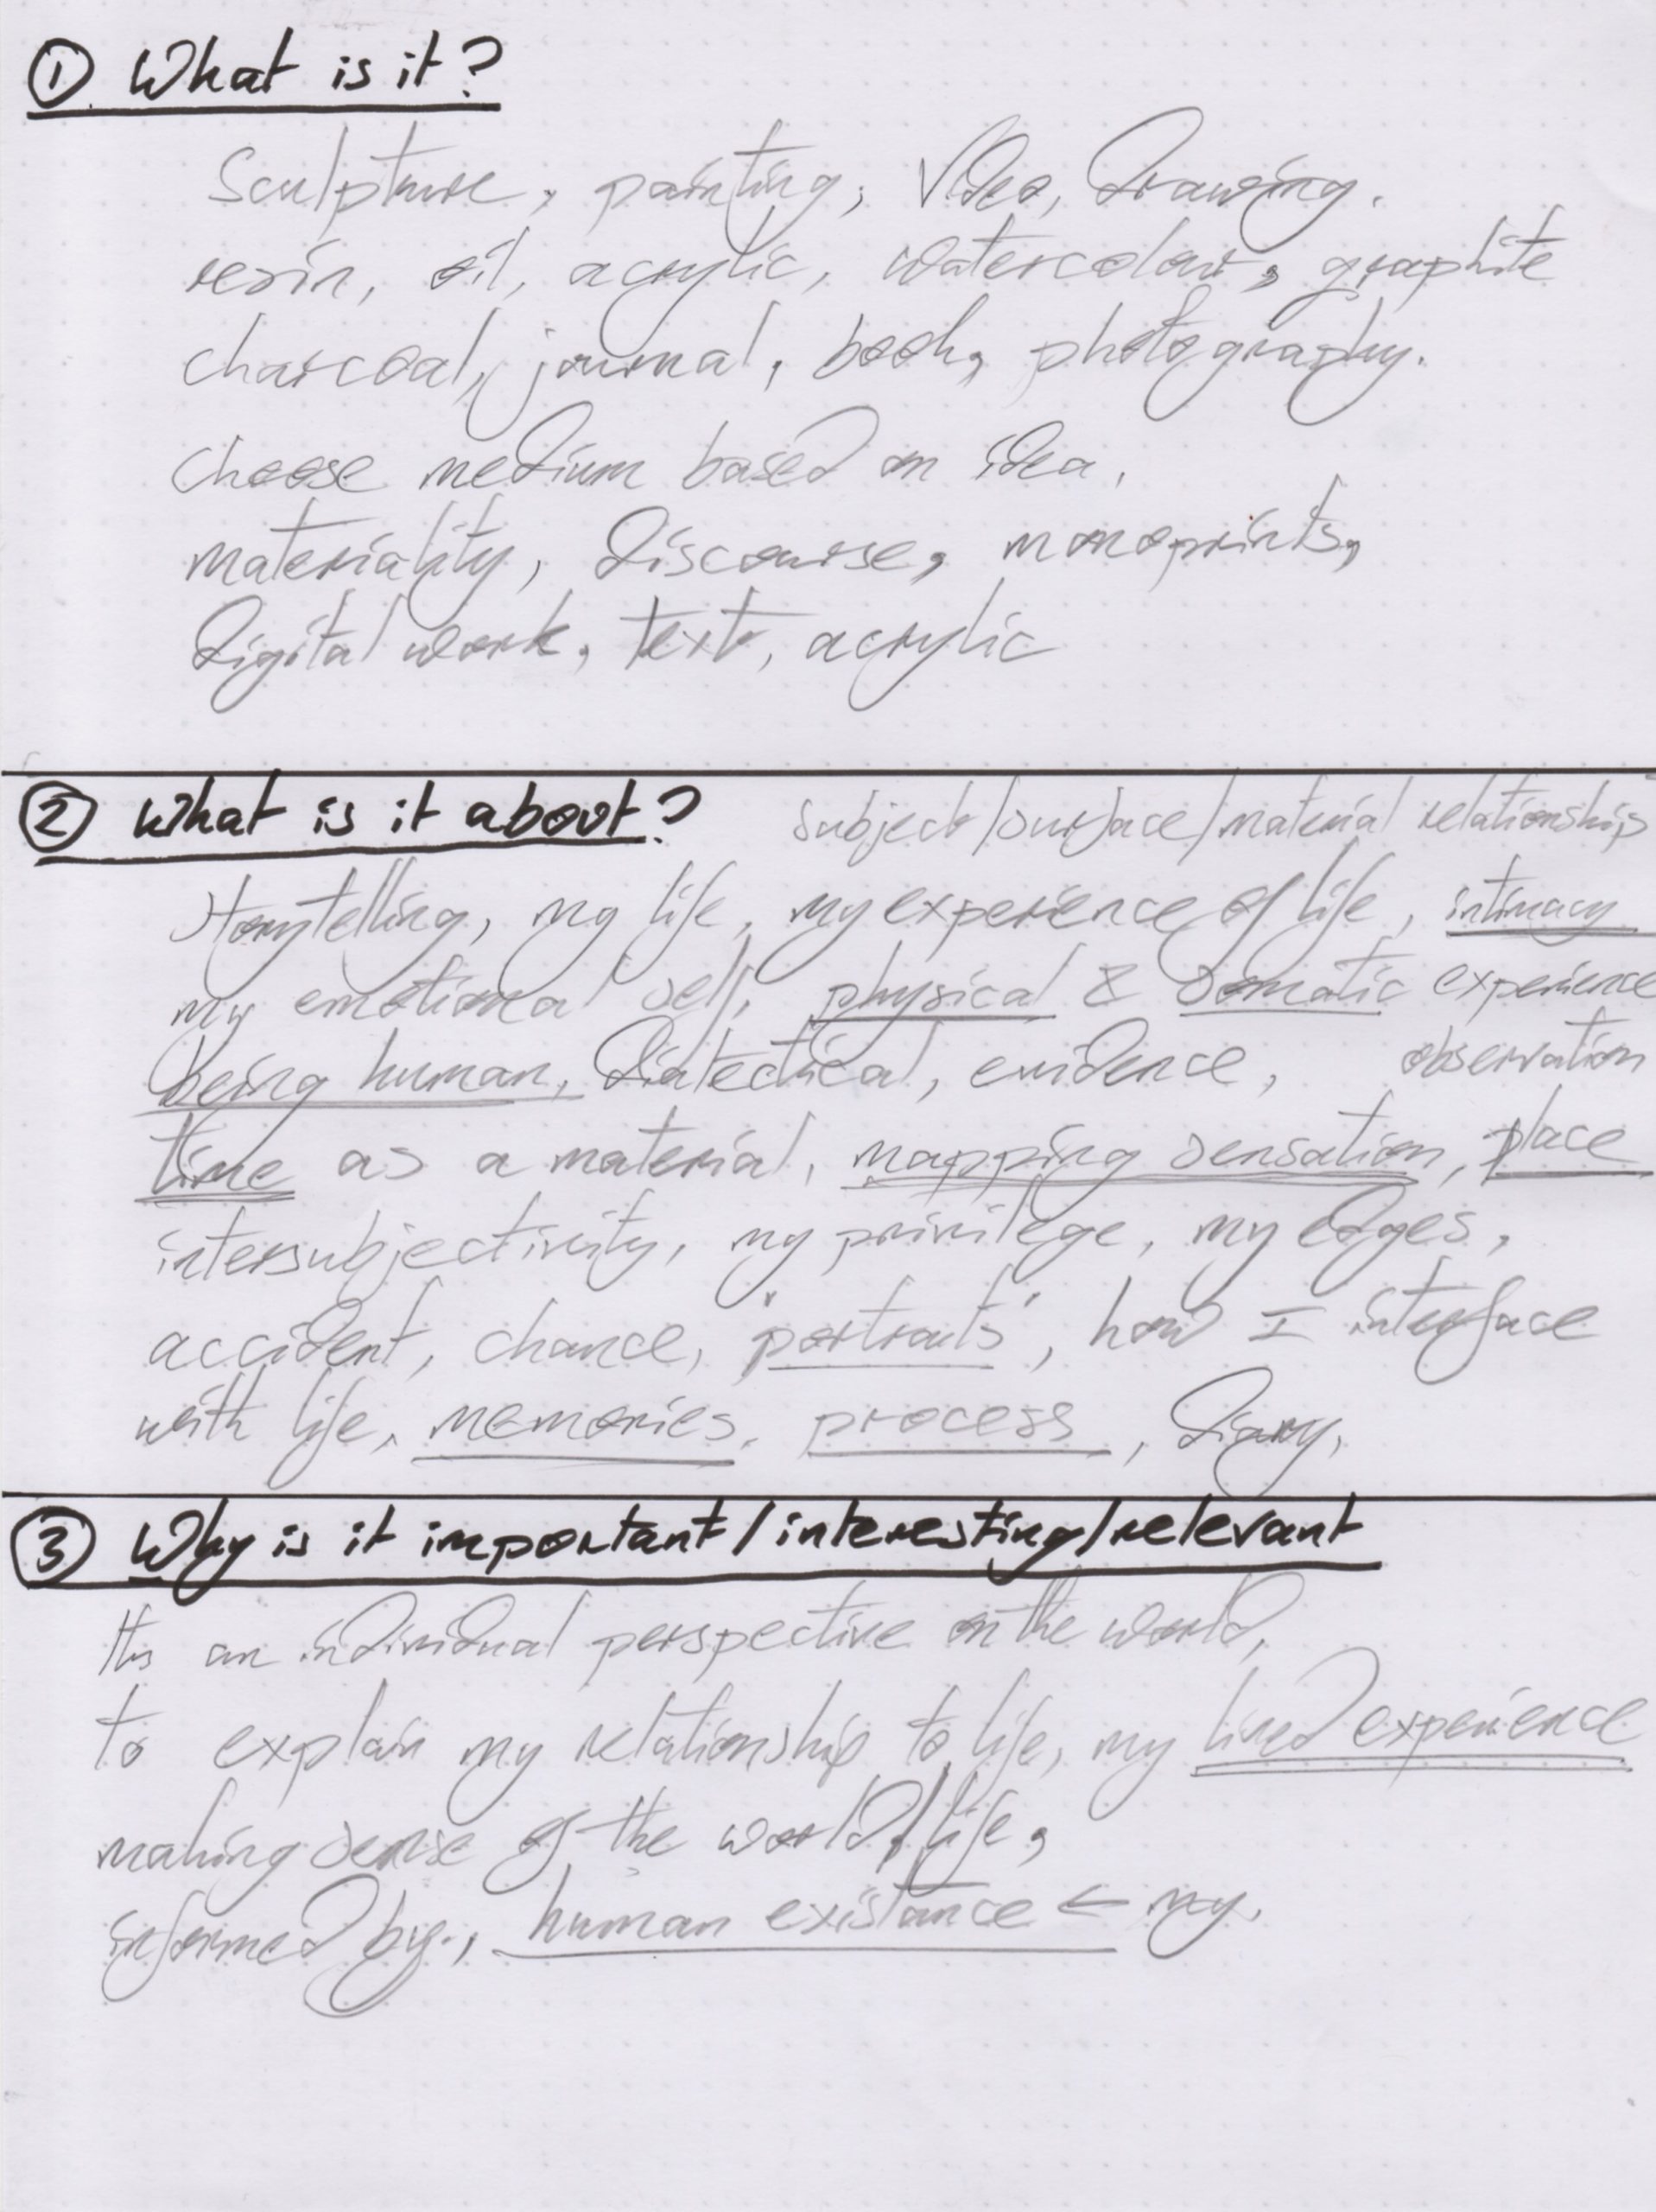 ① What is it?
Sculpture, painting, Video, Drawing.
resin, oil, acrylic, watercolour, graphite
charcoal, journal, book, photography.
choose medium based on idea,
materiality, Discourse, monoprints,
Digital work, text, acrylic
② What is it about? subject/surface/material relationship
Storytelling, my life, my experience of life, intimacy
my emotional self, physical & somatic experience
being human, Dialectical, evidence, observation
time as a material, mapping sensation, place
intersubjectivity, my privilege, my edges,
accident, chance, "portraits", how I interface
with life, memories, process, Diary,
③ Why is it important/interesting/relevant
Its an individual perspective on the world,
to explain my relationship to life, my lived experience
making sense of the world/life,
informed by, human existance ← my.